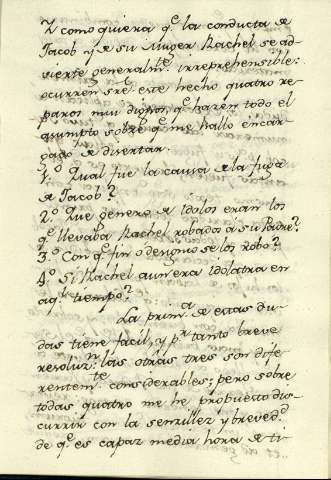 Y como quiera q.e la conducta de
Jacob y de su Muger Rachel se ad-
vierte generalm.te irreprehensible:
ocurren sre. este hecho quatro re-
paros mui dignos, q.e hazen todo el
asumpto sobre q.e me hallo encar-
gado de disertar.
1.º Qual fue la causa de la fuga
de Jacob?
2.º Que genero de idolos eran los
q.e llevaba Rachel robados a su Padre?
3.º Con q.e fin o designio se los robo?
4.º Si Rachel aun era idolatra en
aq.l tiempo?
La prim.a de estas du-
das tiene facil, y p.r tanto breve
resoluz.n: las otras tres son dife-
rentem.te considerables; pero sobre
todas quatro me he propuesto dis-
currir con la senzillez y breved.d
de q.e es capaz media hora de ti-